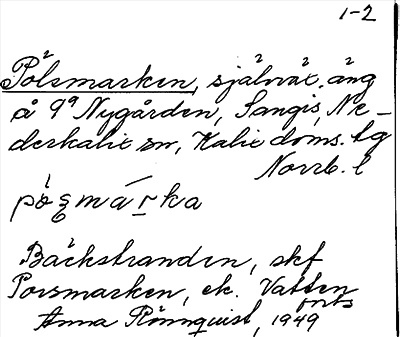 1-2
Pölsmarken, självväx. äng
å gd Nygården, Sangis, Ne-
derkalix sn, Kalix doms. lg
Norrb. l
Bäckstranden, skf
Porsmarken, ek. Vatten
forts
Anna Rönnquist, 1949